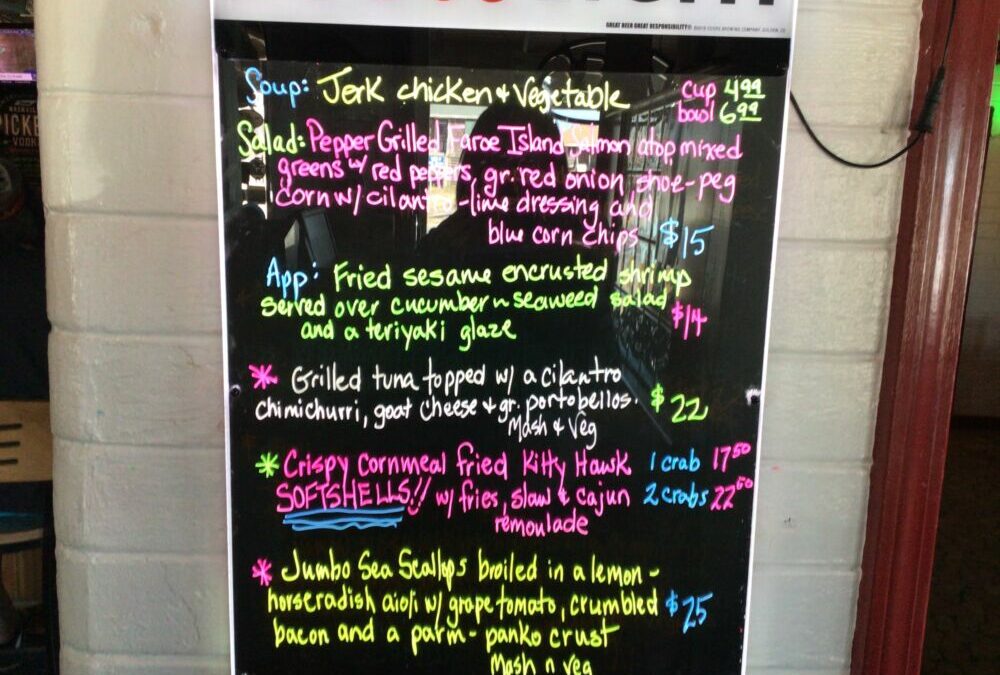 GREAT BEER GREAT RESPONSIBILITY®
Soup: Jerk chicken + Vegetable cup 4.99
bowl 6.99
Salad: Pepper Grilled Faroe Island Salmon atop mixed
greens w/ red peppers, gr. red onion, shoe-peg
corn w/ cilantro-lime dressing and
blue corn chips $15
App: Fried sesame encrusted shrimp
served over cucumber n seaweed salad
and a teriyaki glaze $14
* Grilled tuna topped w/ a cilantro
chimichurri, goat cheese + gr. portobellos. $22
Mash + Veg
* Crispy cornmeal fried Kitty Hawk 1 crab 17.50
SOFTSHELLS!! w/ fries, slaw + cajun 2 crabs 22.50
remoulade
* Jumbo Sea Scallops broiled in a lemon-
horseradish aioli w/ grape tomato, crumbled $25
bacon and a parm-panko crust
Mash n veg